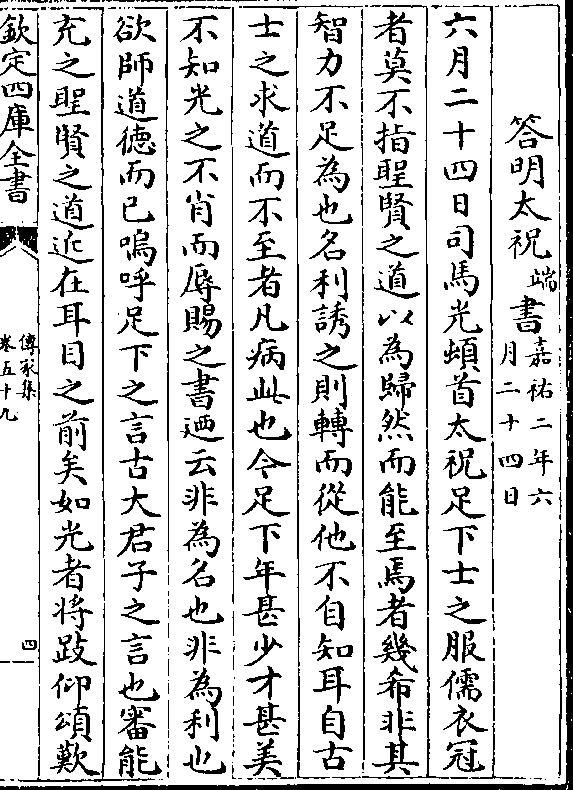 答明太祝端書嘉祐二年六月二十四日
六月二十四日司馬光頓首太祝足下士之服儒衣冠
者莫不指聖賢之道以為歸然而能至焉者幾希非其
智力不足為也名利誘之則轉而從他不自知耳自古
士之求道而不至者凡病此也今足下年甚少才甚美
不知光之不肖而辱賜之書廼云非為名也非為利也
欲師道德而已嗚呼足下之言古大君子之言也審能
充之聖賢之道近在耳目之前矣如光者將跂仰頌歎
欽定四庫全書
傳家集
卷五十九
四